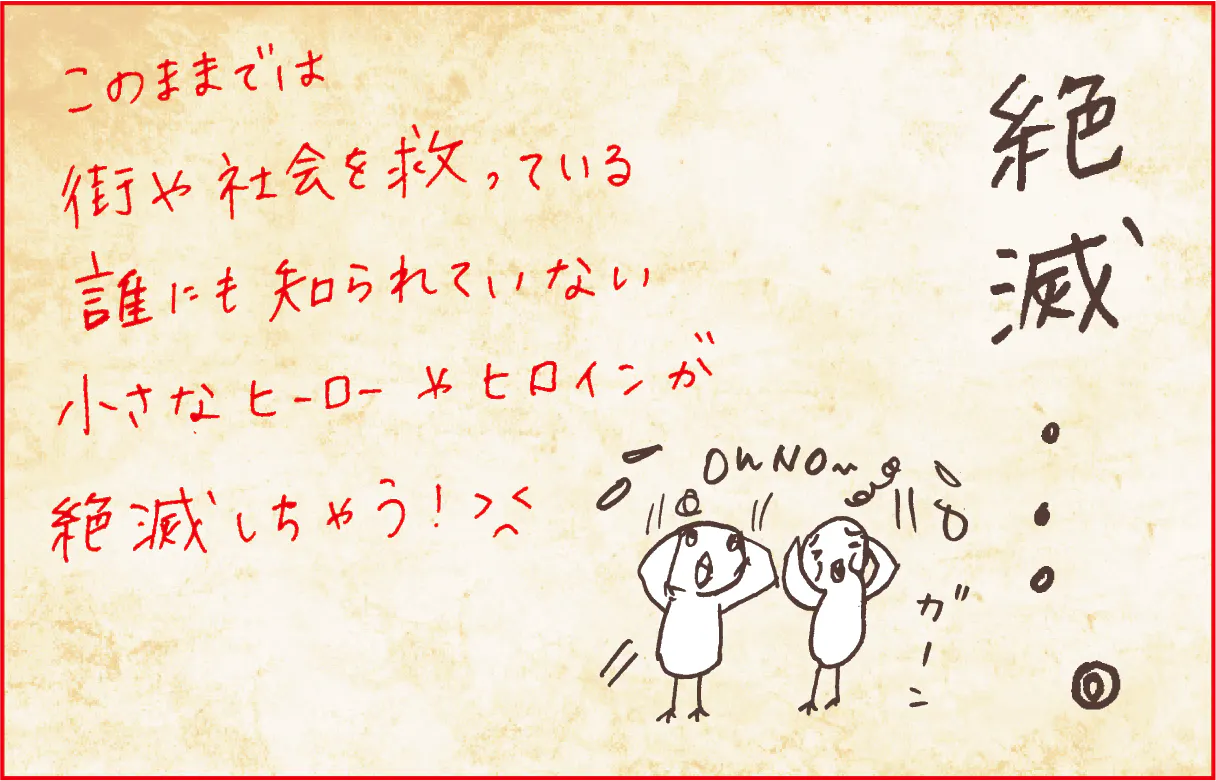 このままでは
街や社会を救っている
誰にも知られていない
小さなヒーローやヒロインが
絶滅しちゃう!><
絶滅...。
OH NO~
ガーン